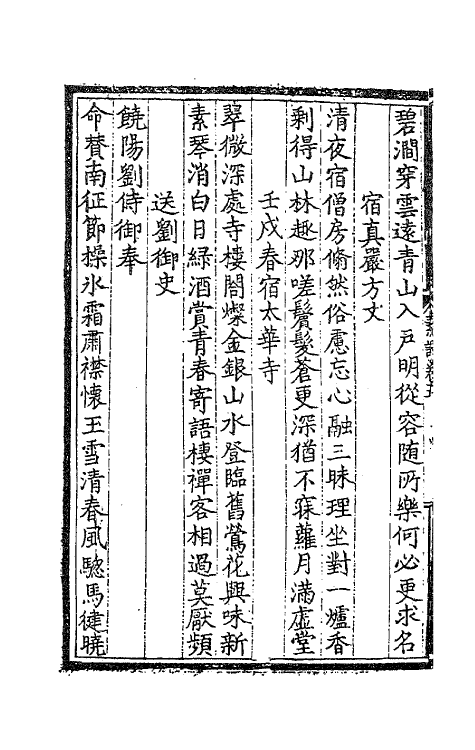 碧澗穿雲遠青山入戸明從容随所樂何必更求名
宿真嚴方丈
清夜宿僧房翛然俗慮忘心融三昧理坐對一爐香
剩得山林趣那嗟鬢髮蒼更深猶不寐蘿月滿虛堂
壬戌春宿太華寺
翠微深處寺樓閣燦金銀山水登臨舊鶯花興味新
素琴消白日緑酒賞青春寄語棲禪客相過莫厭頻
送劉御史
饒陽劉侍御奉
命賛南征節操氷霜肅襟懐玉雪清春風驄馬健曉